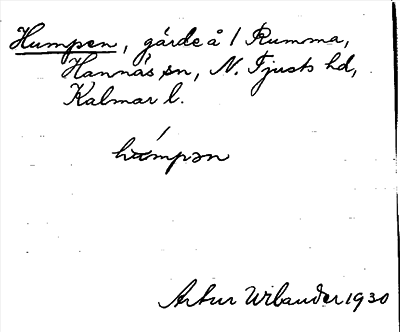 Humpen, gärde å 1 Rumma,
Hannäs sn, N. Tjusts hd,
Kalmar l.
húmpən
Artur Urbander 1930